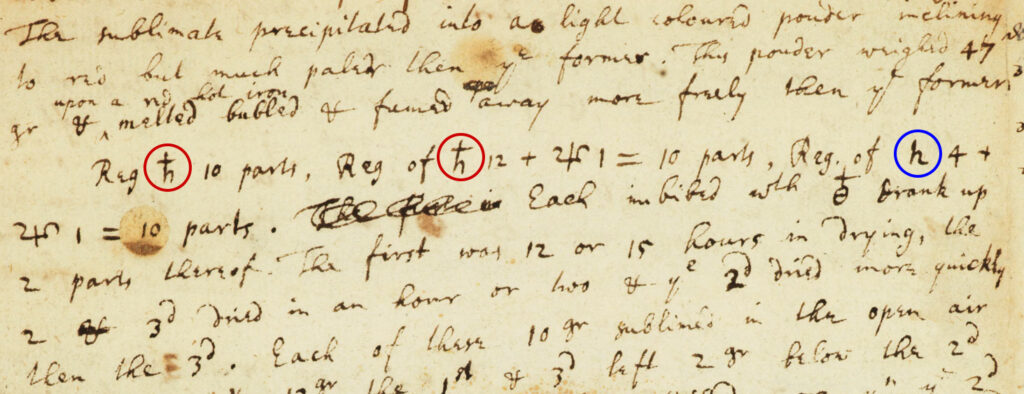 The sublimate precipitated into a light coloured powder inclining
to red but much paler then yᵉ former. This powder weighed 47
upon a red hot iron
gr & ‸ melted bubled & fumed away more freely then yᵉ former
Reg ♄ 10 parts, Reg of ♄ 12 + ♃ 1 = 10 parts, Reg. of ♄ 4 +
♃ 1 = 10 parts. Each imbibed wth drank up
2 parts thereof. The first was 12 or 15 hours in drying, the
2 3ᵈ dried in an hour or two & yᵉ 2ᵈ dried more quickly
then the 3ᵈ. Each of these 10 gr sublimed in the open air
12 gr the 1ˢᵗ & 3ᵈ left 2 gr below the 2ᵈ